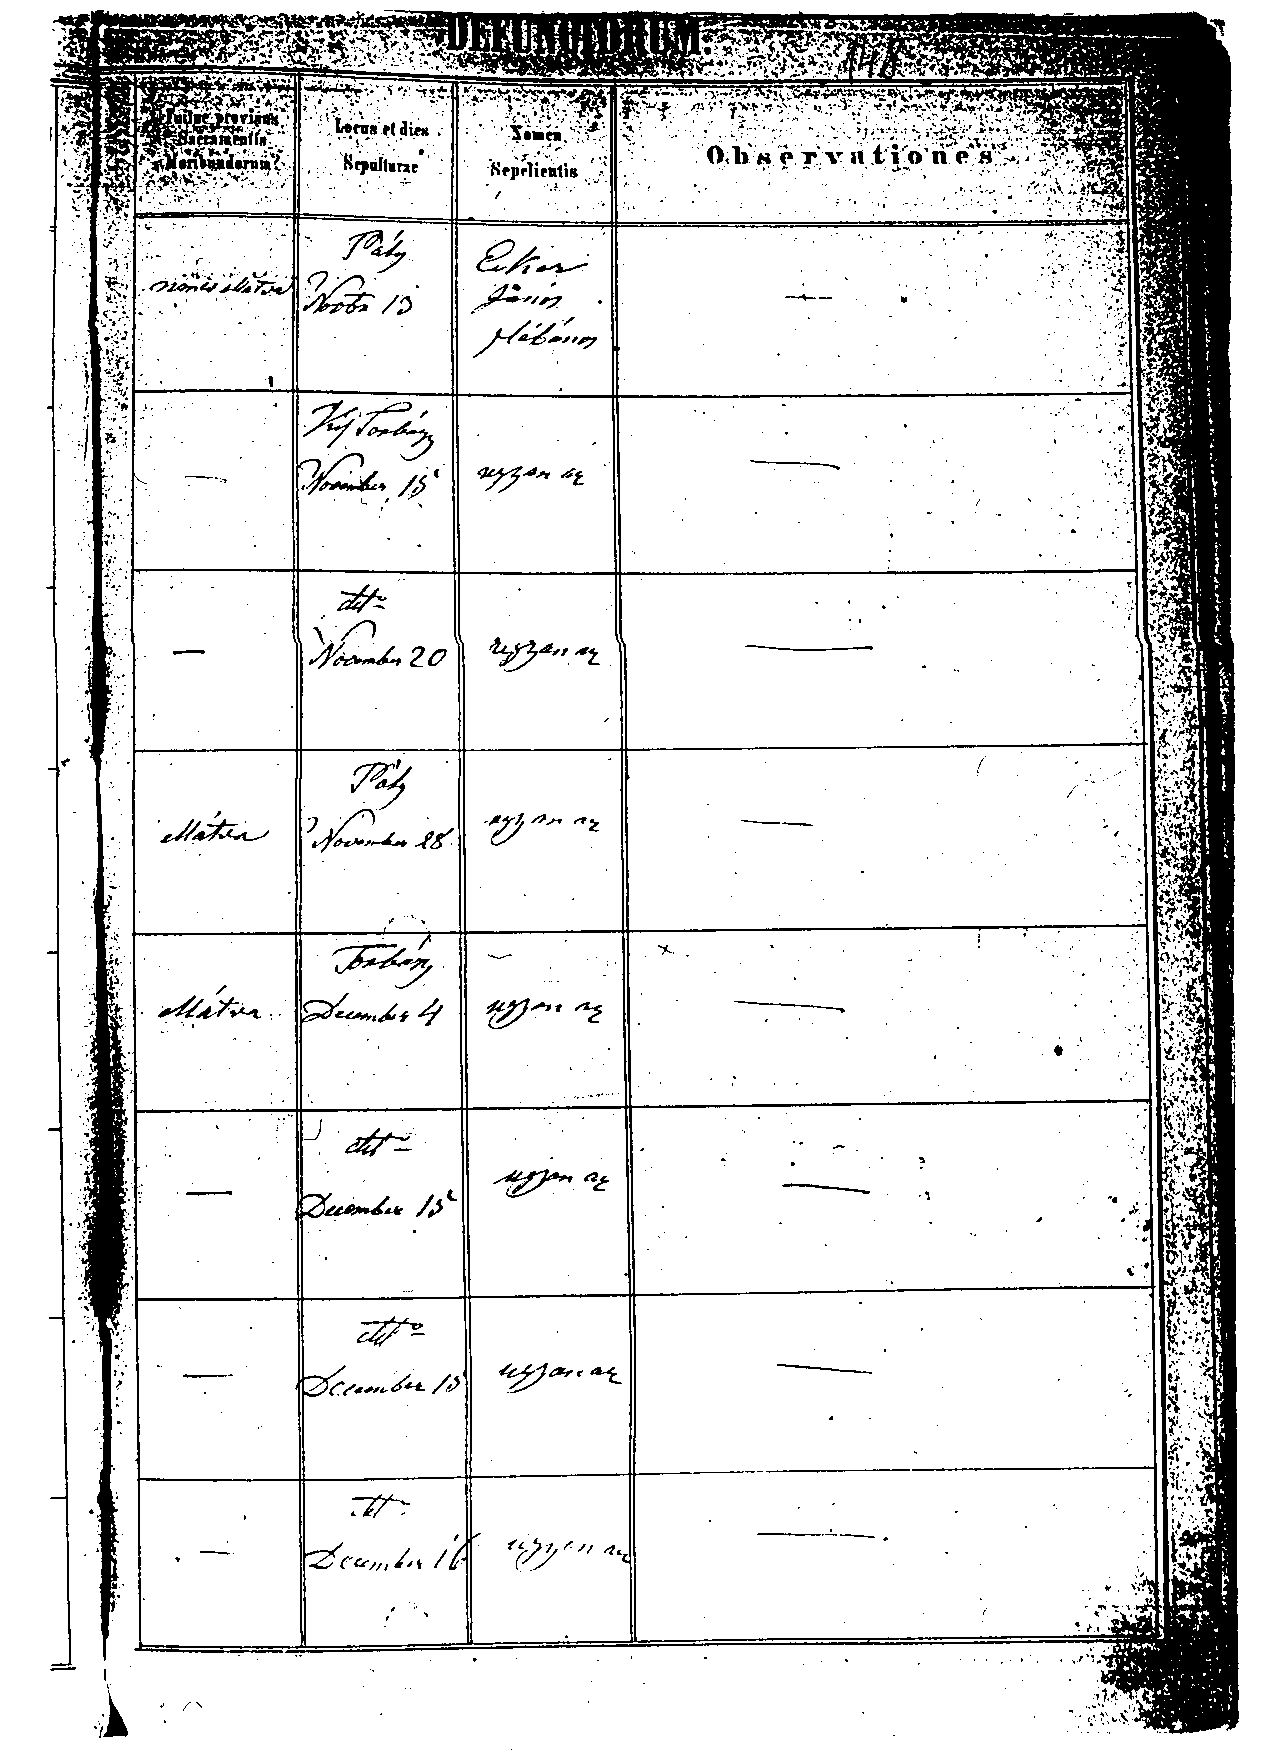 DEFUNCTORUM.
148
Fuitne provisus
Sacramentis
Moribundorum?
Locus et dies
Sepulturae
Nomen
Sepelientis
Observationes
Pály
nincs ellátva
Novbr 13
János
plébános
—
November 15
—
ugyan az
—
detto
—
November 20
ugyan az
—
Pály
ellátva
November 28
ugyan az
—
ellátva
December 4
ugyan az
—
detto
—
December 15
ugyan az
—
detto
—
December 15
ugyan az
—
detto
—
December 16
ugyan az
—